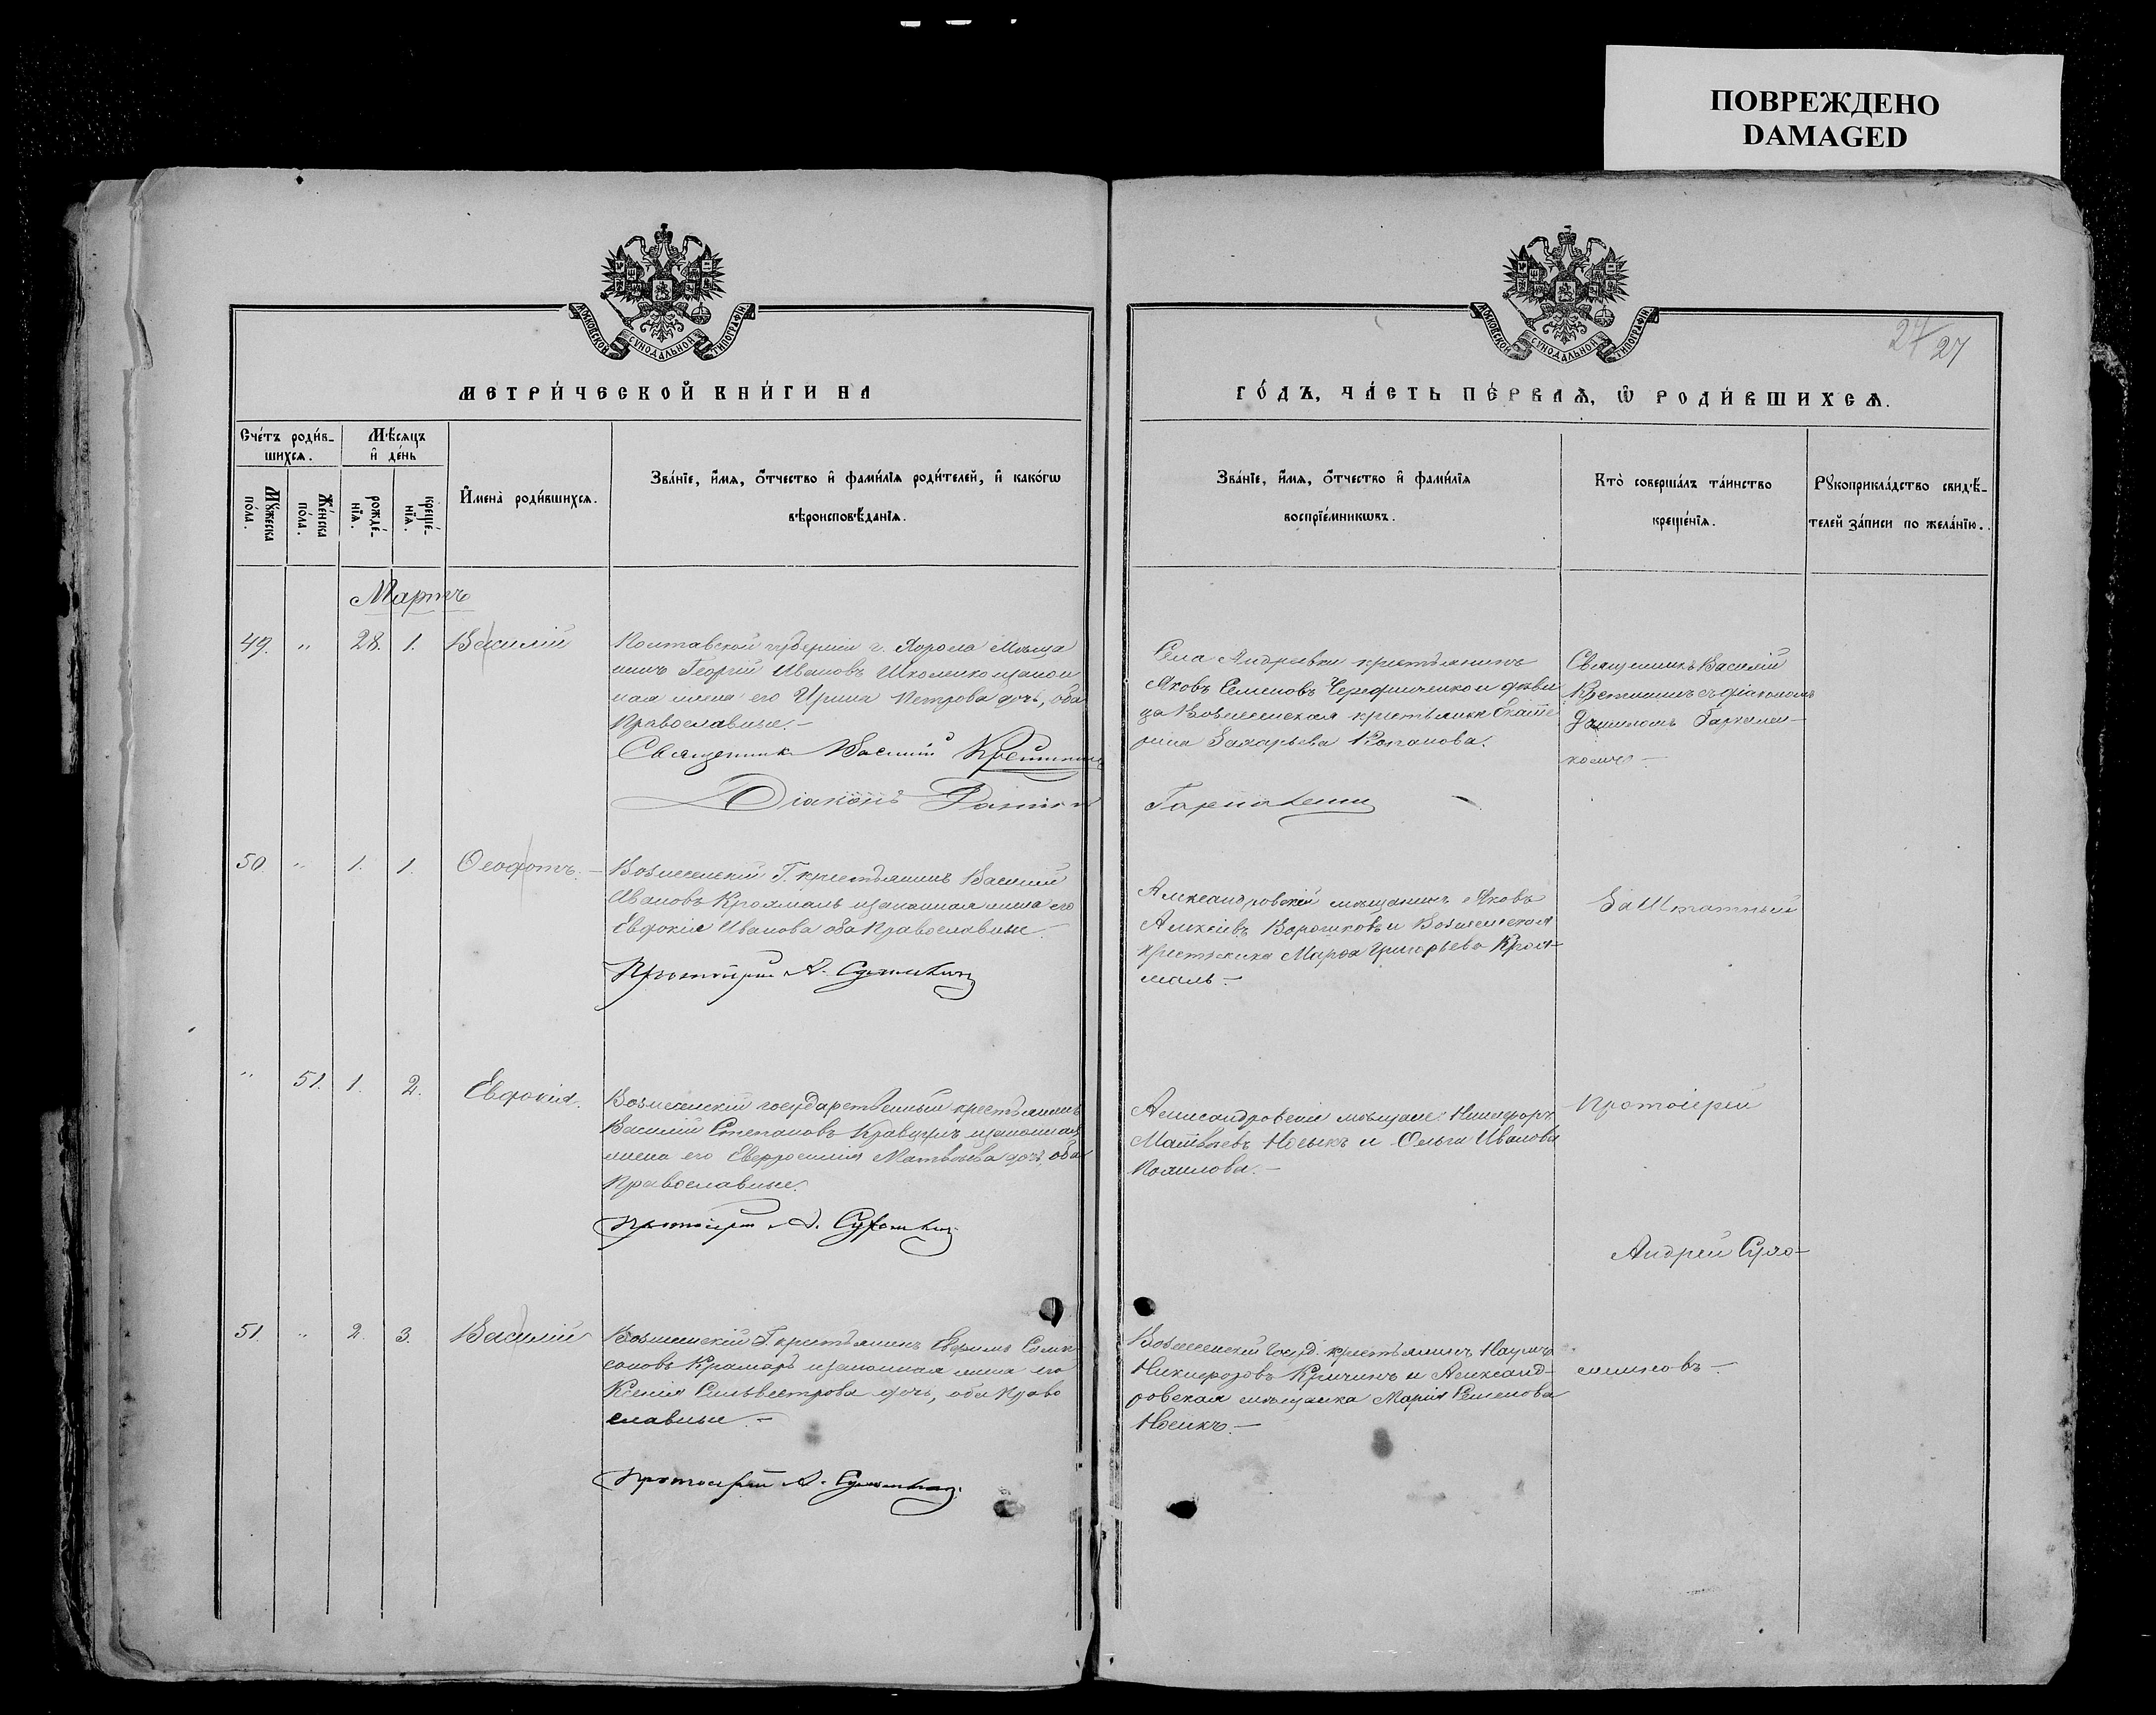 ПОВРЕЖДЕНО
DAMAGED
МОСКОВСКОЙ СУНОДАЛЬНОЙ ТИПОГРАФІИ
МОСКОВСКОЙ СУНОДАЛЬНОЙ ТИПОГРАФІИ
27/27
МЕТРИ́ЧЕСКОЙ КНИ́ГИ НА
ГО́ДЪ, ЧА́СТЬ ПЕ́РВАѦ, Ѿ РОДИ́ВШИХСѦ.
Сче́тъ роди́в-
шихсѧ.
Мѣ́сяцъ
и҆ де́нь
Мꙋ́жеска
по́ла.
Же́нска
по́ла.
рожде́-
нїѧ.
креще́-
нїѧ.
И҆мена̀ роди́вшихсѧ.
Зва́нїе, и҆́мѧ, ѻ҆́тчество и҆ фами́лїѧ роди́телей, и҆ како́гѡ
вѣроисповѣ́данїѧ.
Зва́нїе, и҆́мѧ, ѻ҆́тчество и҆ фами́лїѧ
воспрїе́мникѡвъ.
Кто̀ соверша́лъ та́инство
креще́нїѧ.
Рꙋкоприкла́дство свидѣ́-
телей за́писи по жела́нїю.
Мартъ
49. " 28. 1. Василій
Полтавской губерніи г. Хорола Мѣща
нинъ Георгій Ивановъ Школенко и законн
ная жена его Ирина Петрова дочь, оба
Православные.-
Священник Василій
Діаконъ
Села Андреевки крестьянинъ
Яковъ Семеновъ Чередниченко и дѣви
ца Вознесенская крестьянка Екате
рина Захарьева
Священникъ Василій
съ діакономъ
50 " 1. 1. Ѳеофотъ.-
Вознесенскій Г. крестьянинъ Василій
Ивановъ Крохмаль и законная жена его
Евдокія Иванова оба Православные.-
Протоіерей А.
Александровскій мѣщанинъ Яковъ
Алексѣевъ и Вознесенская
крестьянка Марѳа Григорьева Крох-
маль.-
Заштатный
" 51. 1. 2. Евдокія.
Вознесенскій государственный крестьянинъ
Василій Степановъ Кравцунъ и законная
жена его Евфросинія Матвѣева дочь, оба
Православные.
Протоіерей А.
Александровскіе мѣщане: Никифоръ
Матвѣевъ Носыкъ и Ольга Иванова
Протоіерей
Андрей
51. " 2. 3. Василій
Вознесенскій Г. крестьянинъ Ефимъ Самп
соновъ Крамаръ и законная жена его
Ксенія Сильвестрова дочь, оба Право
славные.-
Протоіерей А.
Вознесенскій Госуд. крестьянинъ Наумъ
Никифоровъ и Александ-
ровская мѣщанка Марія Семенова
Носикъ.-